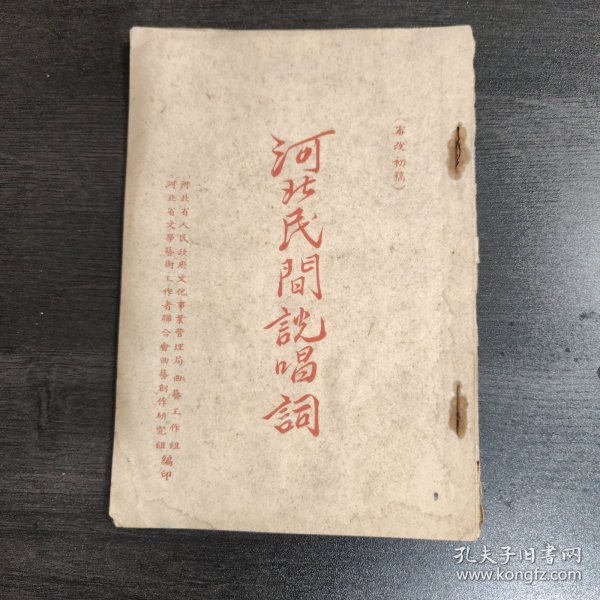 （審改初稿）
河北民間說唱詞
河北省人民政府文化事業管理局曲藝工作組
河北省文學藝術工作者聯合會曲藝創作研究組編印
孔夫子旧书网
www.kongfz.com